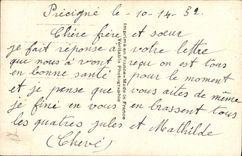 Précigné le - 10 - 14 - 32.
Chère frère et sœur
je fait réponse a votre lettre
que nous a vont reçu on est tous
en bonne santé pour le moment
et je pense que vous aites de même
je fini en vous en brassent tous
les quatres jules et Mathilde
(Chevé)